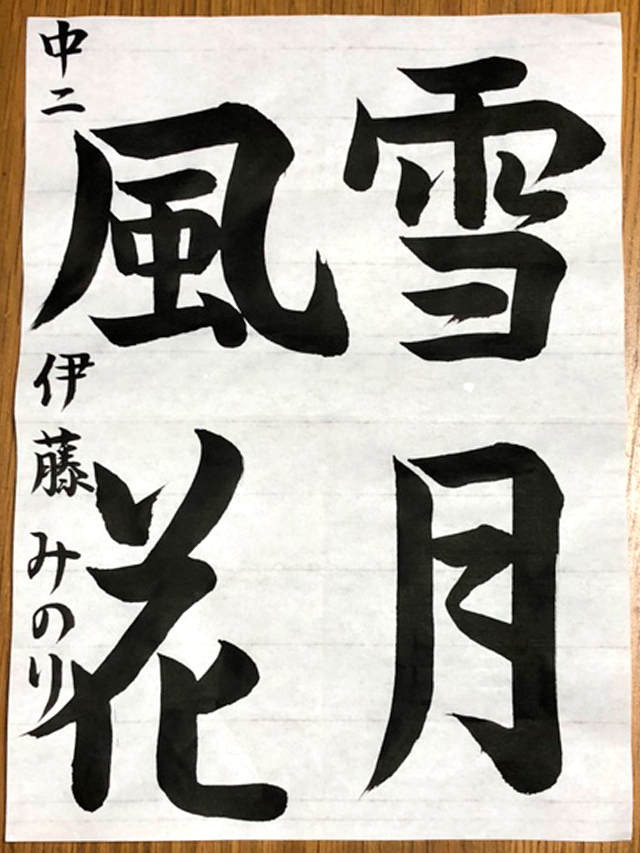 雪月
風花
中二 伊藤みのり